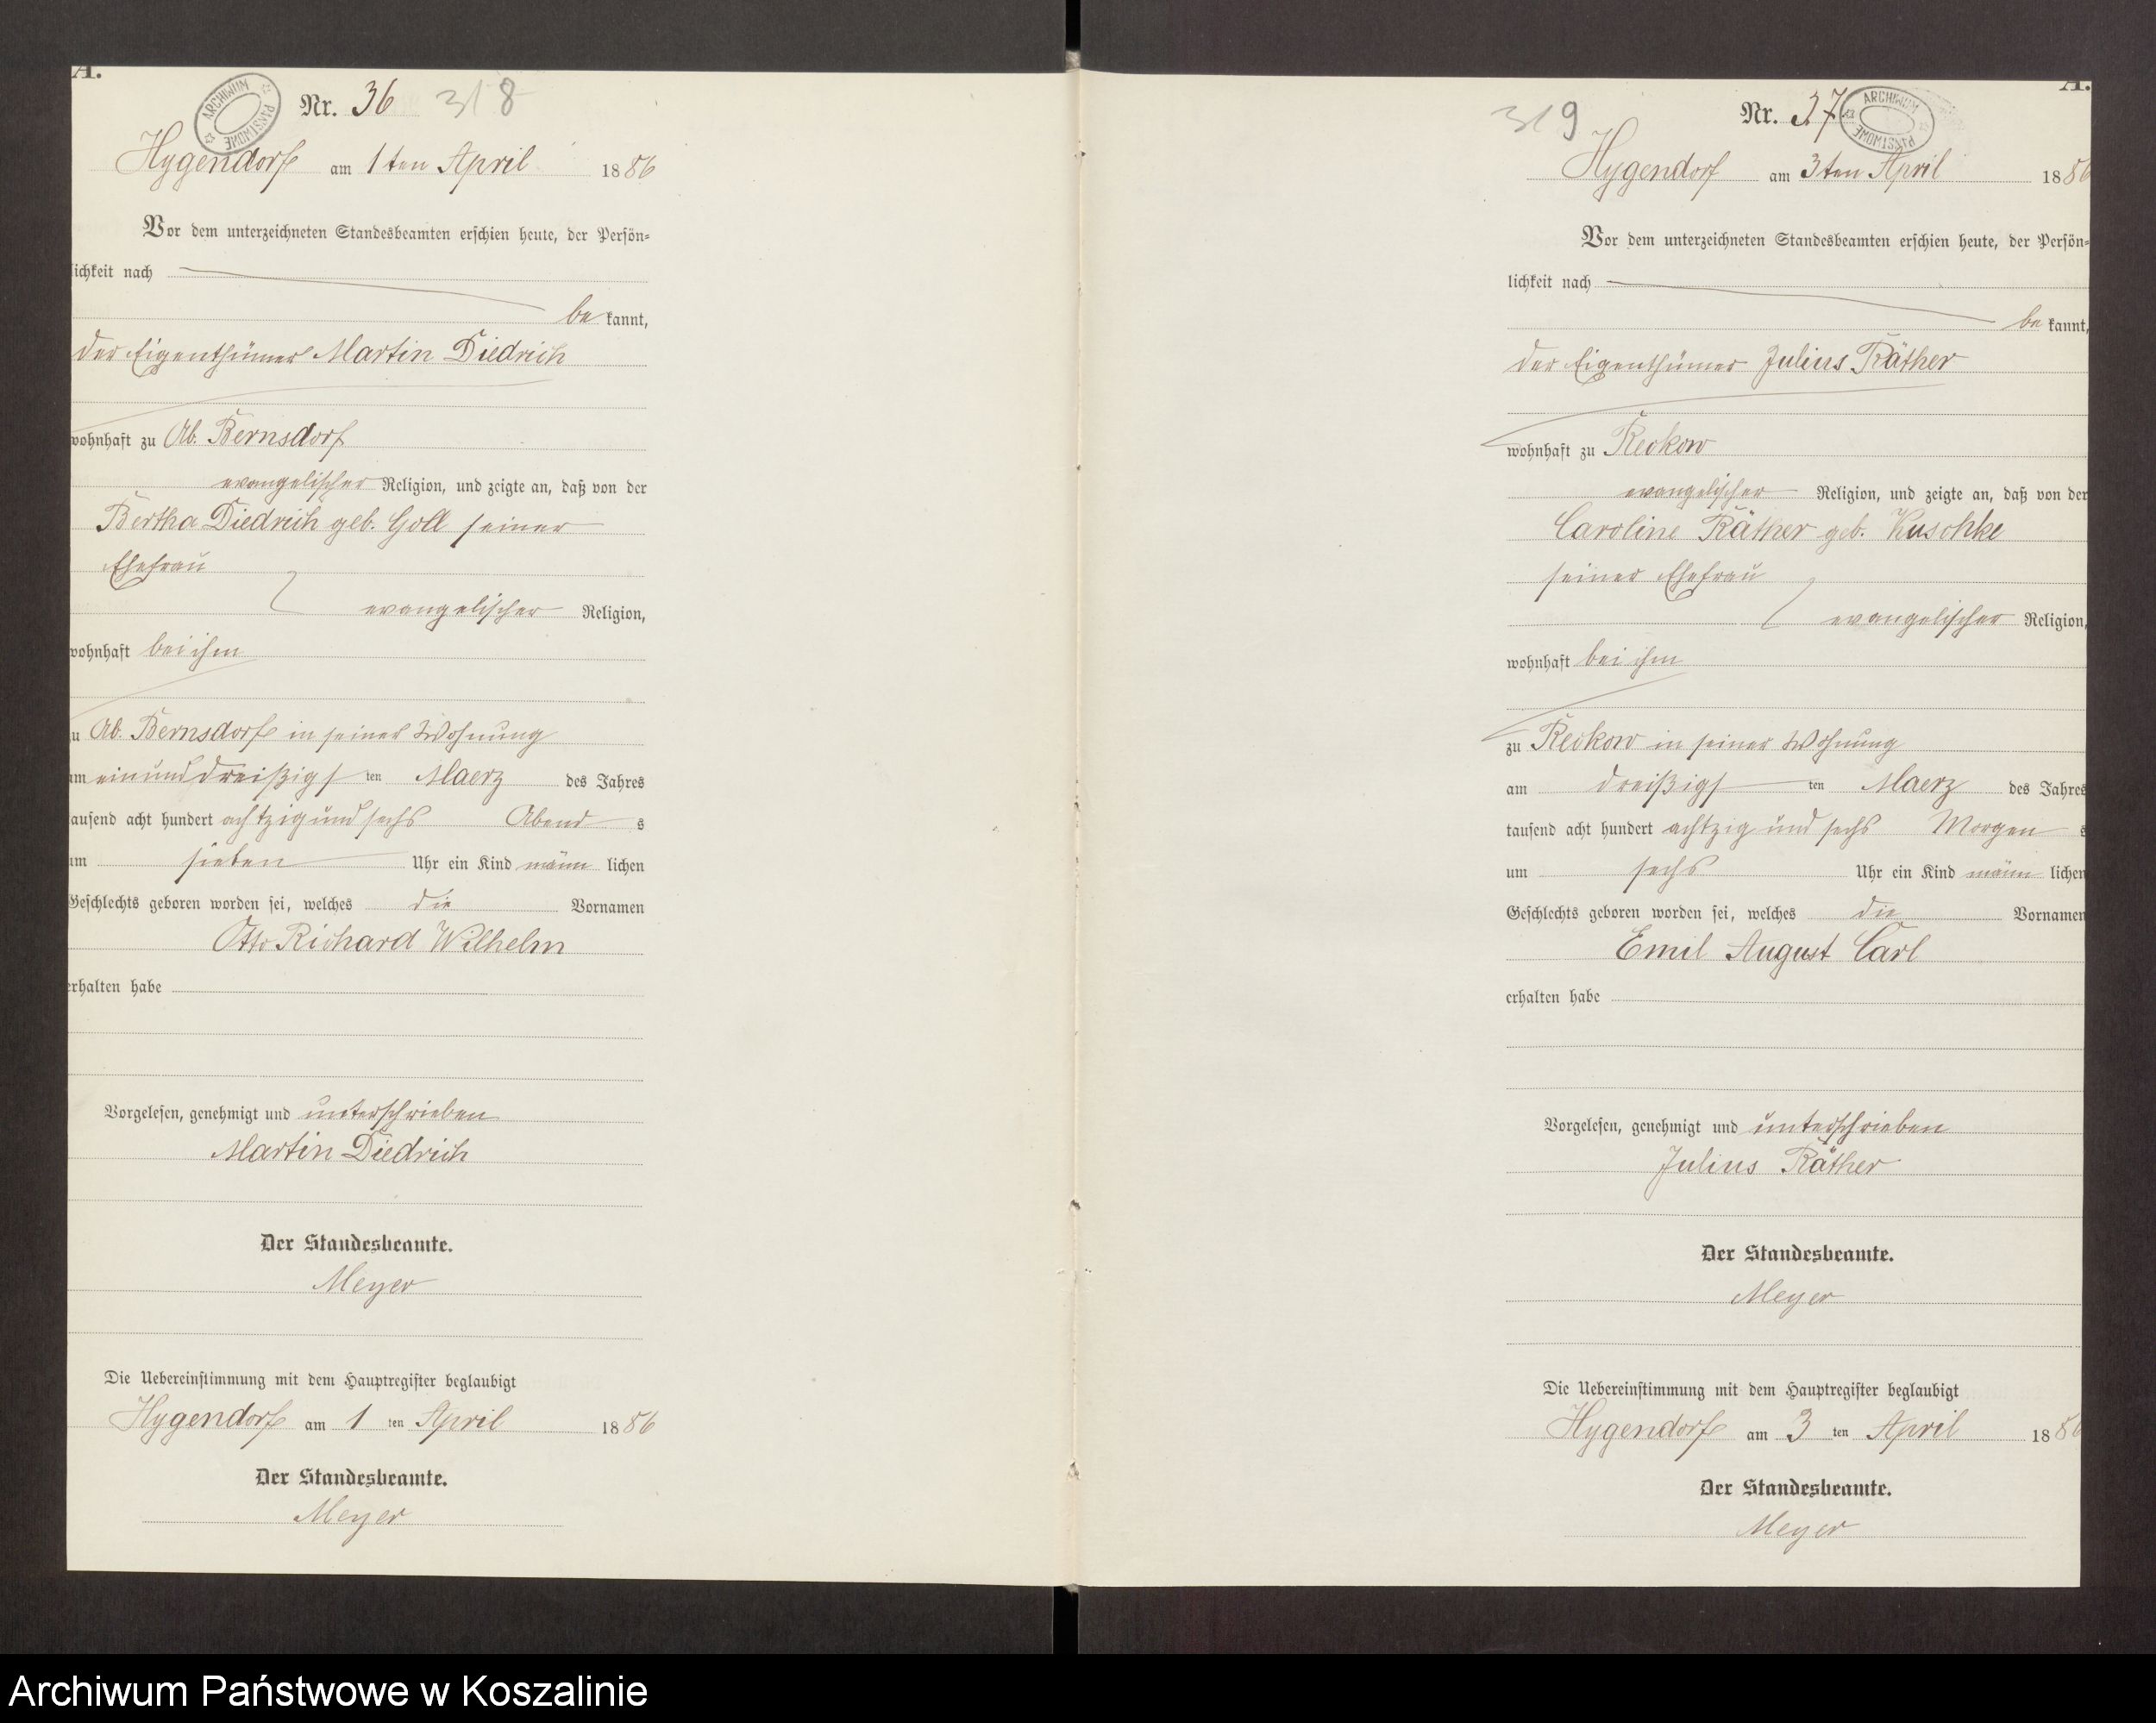 A.
ARCHIWUM PAŃSTWOWE
Nr. 36 318
Hygendorf am 1ten April 1886
Vor dem unterzeichneten Standesbeamten erschien heute, der Persön-
lichkeit nach
be kannt,
der Eigenthümer Martin Diedrich
wohnhaft zu Ab. Bernsdorf
evangelischer Religion, und zeigte an, daß von der
Bertha Diedrich geb. Goll seiner
Ehefrau
evangelischer Religion,
wohnhaft bei ihm
zu Ab. Bernsdorf in seiner Wohnung
am einunddreißigs ten Maerz des Jahres
tausend acht hundert achtzig und sechs Abend s
um sieben Uhr ein Kind männ lichen
Geschlechts geboren worden sei, welches die Vornamen
Otto Richard Wilhelm
erhalten habe
Vorgelesen, genehmigt und unterschrieben
Martin Diedrich
Der Standesbeamte.
Meyer
Die Uebereinstimmung mit dem Hauptregister beglaubigt
Hygendorf am 1 ten April 1886
Der Standesbeamte.
Meyer
A.
319 Nr. 37
ARCHIWUM PAŃSTWOWE
Hygendorf am 3ten April 1886
Vor dem unterzeichneten Standesbeamten erschien heute, der Persön-
lichkeit nach
be kannt,
der Eigenthümer Julius Räther
wohnhaft zu Reckow
evangelischer Religion, und zeigte an, daß von der
Caroline Räther geb. Kuschke
seiner Ehefrau
evangelischer Religion,
wohnhaft bei ihm
zu Reckow in seiner Wohnung
am dreißigs ten Maerz des Jahres
tausend acht hundert achtzig und sechs Morgen s
um sechs Uhr ein Kind männ lichen
Geschlechts geboren worden sei, welches die Vornamen
Emil August Carl
erhalten habe
Vorgelesen, genehmigt und unterschrieben
Julius Räther
Der Standesbeamte.
Meyer
Die Uebereinstimmung mit dem Hauptregister beglaubigt
Hygendorf am 3 ten April 1886
Der Standesbeamte.
Meyer
Archiwum Państwowe w Koszalinie